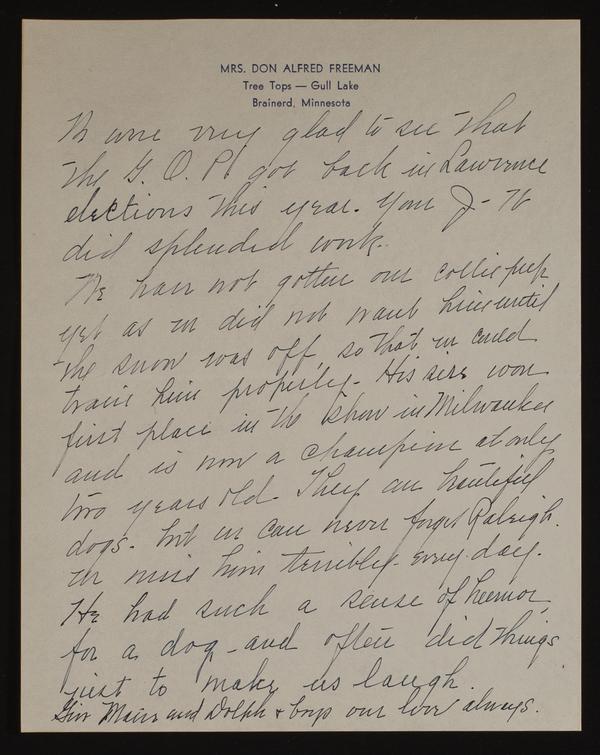 MRS. DON ALFRED FREEMAN
Tree Tops — Gull Lake
Brainerd, Minnesota
We were very glad to see that
the G. O. P. got back in Lawrence
elections this year. Your J-W
did splendid work.
We have not gotten our collie pup
yet as we did not want him until
the snow was off, so that we could
train him properly. His sire won
first place in the show in Milwaukee
and is now a champion at only
two years old. They are beautiful
dogs. but we can never forget Raleigh.
we miss him terribly - every day.
He had such a sense of humor,
for a dog - and often did things
just to make us laugh.
Give and Dolph + boys our love always.